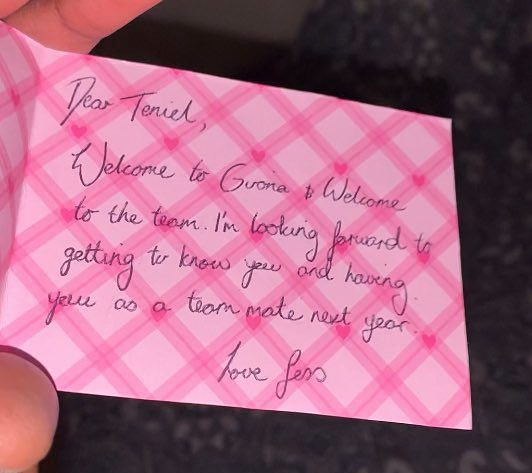 Dear Teniel,
Welcome to Gvona & Welcome
to the team. I'm looking forward to
getting to know you and having
you as a team mate next year.
Love Jess